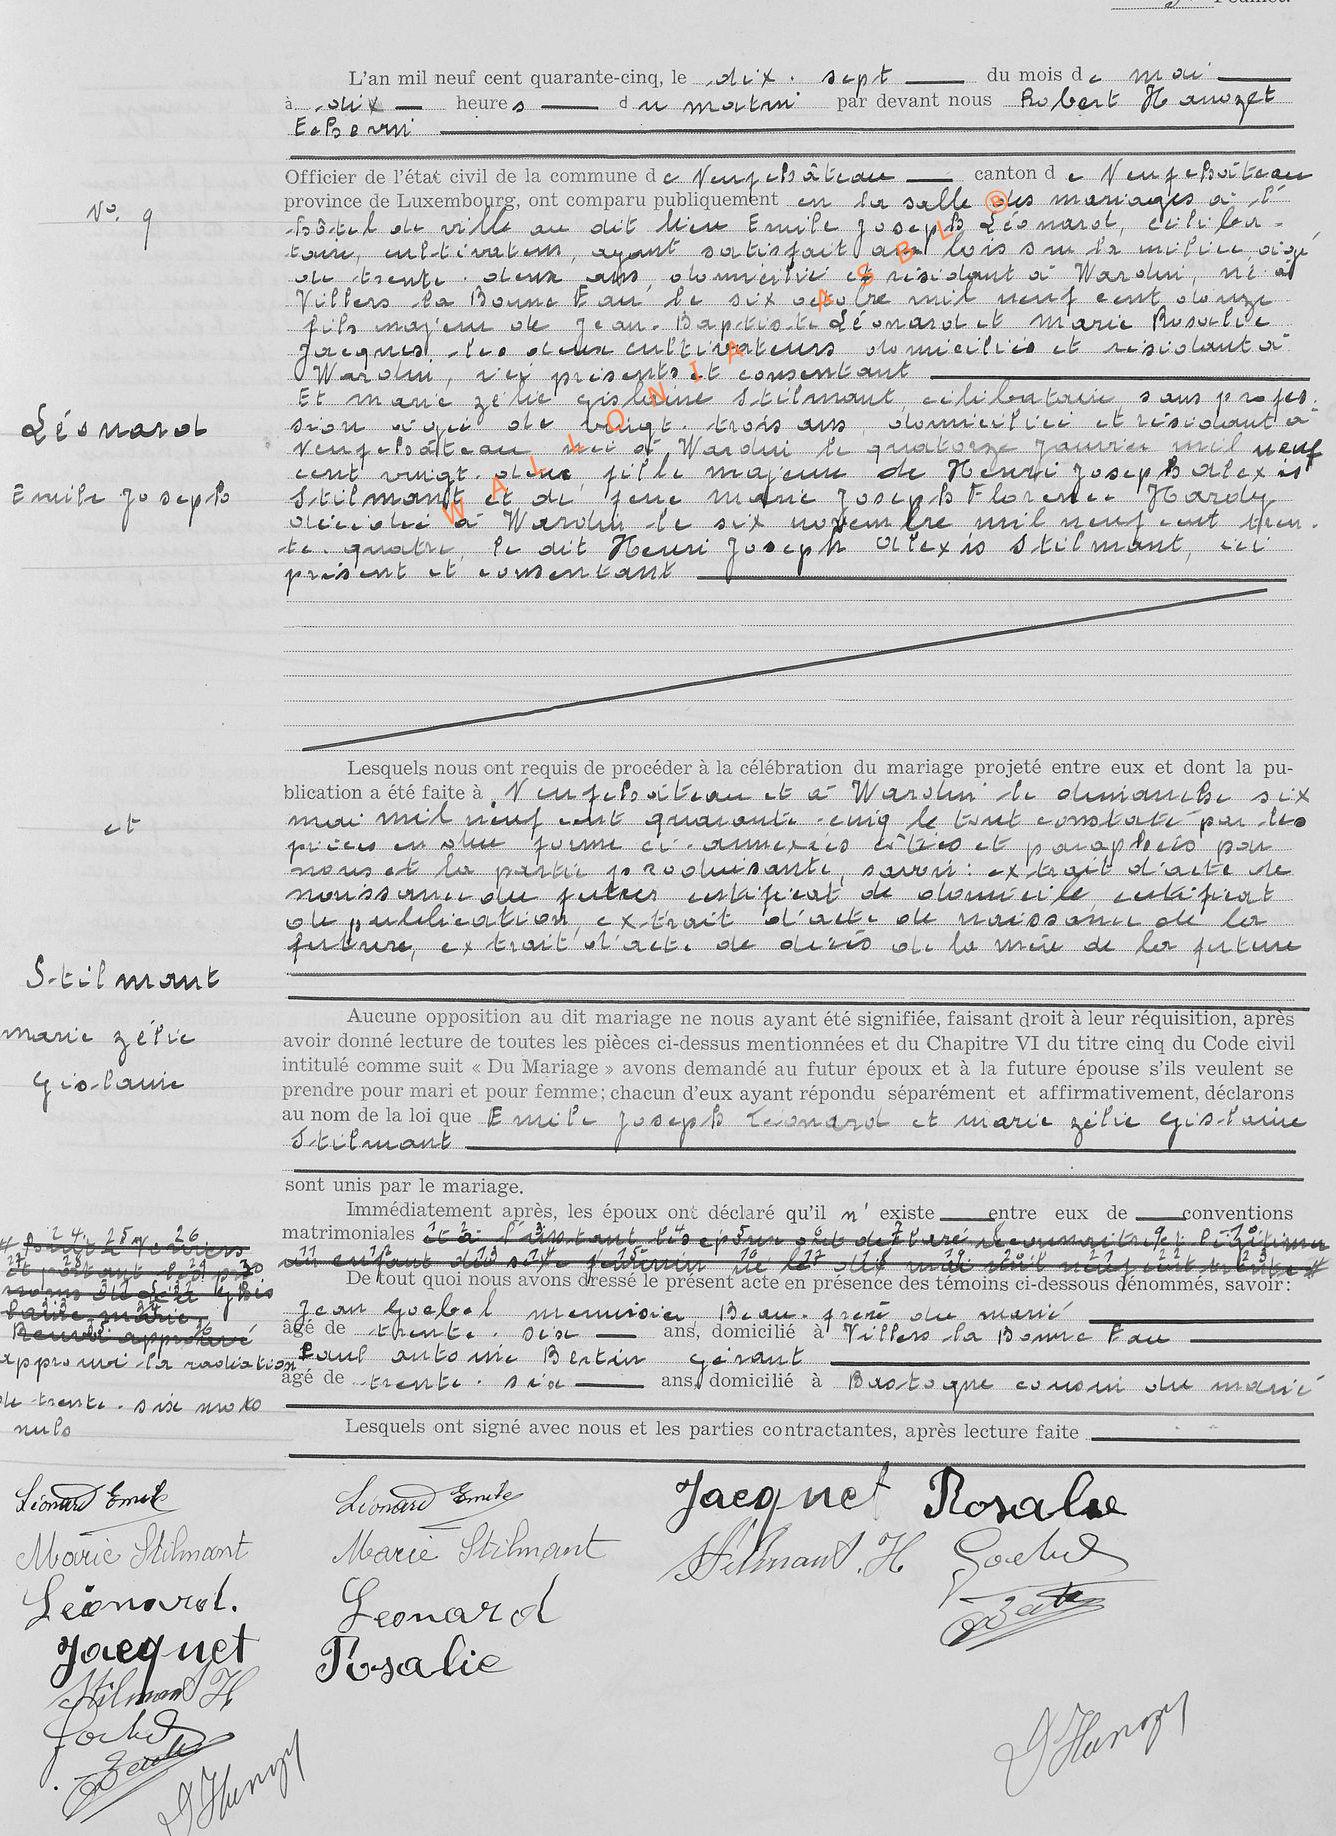 Feuillet.
L'an mil neuf cent quarante-cinq, le dix-sept du mois de mai
à dix heures du matin par devant nous Robert Hanozet
Echevin
Officier de l'état civil de la commune de Neufchâteau canton de Neufchâteau
province de Luxembourg, ont comparu publiquement en la salle des mariages à l'
N°. 9
hôtel de ville au dit lieu Emile Joseph Léonard, céliba-
taire, cultivateur, ayant satisfait aux lois sur la milice, âgé
de trente-deux ans, domicilié et résidant à Wardin, né à
Villers-la-Bonne-Eau le six octobre mil neuf cent douze
fils majeur de Jean-Baptiste Léonard et Marie Rosalie
Jacques, les deux cultivateurs domiciliés et résidant à
Wardin, ici présents et consentant
Et Marie Zélie Gislaine Stilmant, célibataire sans profes-
sion âgée de vingt-trois ans, domiciliée et résidant à
Neufchâteau née à Wardin le quatorze janvier mil neuf
cent vingt-deux, fille majeure de Henri Joseph Alexis
Stilmant et de feue Marie Joseph Florence Hardy
décédée à Wardin le six novembre mil neuf cent tren-
te-quatre, le dit Henri Joseph Alexis Stilmant, ici
présent et consentant
Léonard
Emile Joseph
et
Stilmant
Marie Zélie
Gislaine
WALLONIA ASBL ®
Lesquels nous ont requis de procéder à la célébration du mariage projeté entre eux et dont la pu-
blication a été faite à Neufchâteau et à Wardin le dimanche six
mai mil neuf cent quarante-cinq le tout constaté par les
pièces en due forme ci-annexées citées et paraphées par
nous et la partie produisante, savoir: extrait d'acte de
naissance du futur, certificat de domicile, certificat
de publication, extrait d'acte de naissance de la
future, extrait d'acte de décès de la mère de la future
Aucune opposition au dit mariage ne nous ayant été signifiée, faisant droit à leur réquisition, après
avoir donné lecture de toutes les pièces ci-dessus mentionnées et du Chapitre VI du titre cinq du Code civil
intitulé comme suit « Du Mariage » avons demandé au futur époux et à la future épouse s'ils veulent se
prendre pour mari et pour femme; chacun d'eux ayant répondu séparément et affirmativement, déclarons
au nom de la loi que Emile Joseph Léonard et Marie Zélie Gislaine
Stilmant
sont unis par le mariage.
Immédiatement après, les époux ont déclaré qu'il n'existe entre eux de conventions
matrimoniales et à l'instant les époux ont déclaré reconnaître et légitimer
un enfant du sexe féminin né le
De tout quoi nous avons dressé le présent acte en présence des témoins ci-dessous dénommés, savoir:
Jean Goebel menuisier, Beau-frère du marié
âgé de trente-six ans, domicilié à Villers-la-Bonne-Eau
Paul Antoine Bertin gérant
âgé de trente-six ans, domicilié à Bastogne cousin du marié
Renvoi approuvé
approuvé la radiation
de trente-six mots
nuls
Lesquels ont signé avec nous et les parties contractantes, après lecture faite
Léonard Emile Léonard Emile Jacquet Rosalie
Marie Stilmant Marie Stilmant Stilmant. H Goebel
Léonard. Leonard
Jacquet Rosalie
Stilmant H
Goebel